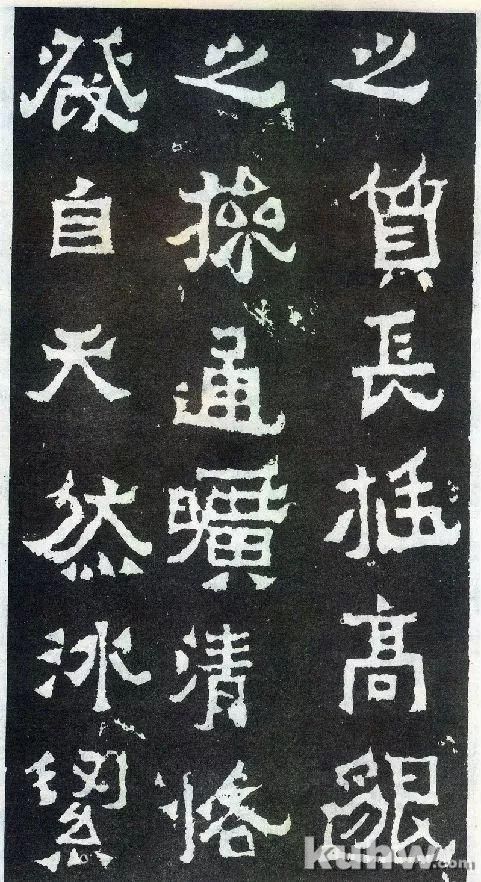 之質長挺高邈
之操通曠清恪
發自天然冰絜
kuhw.com